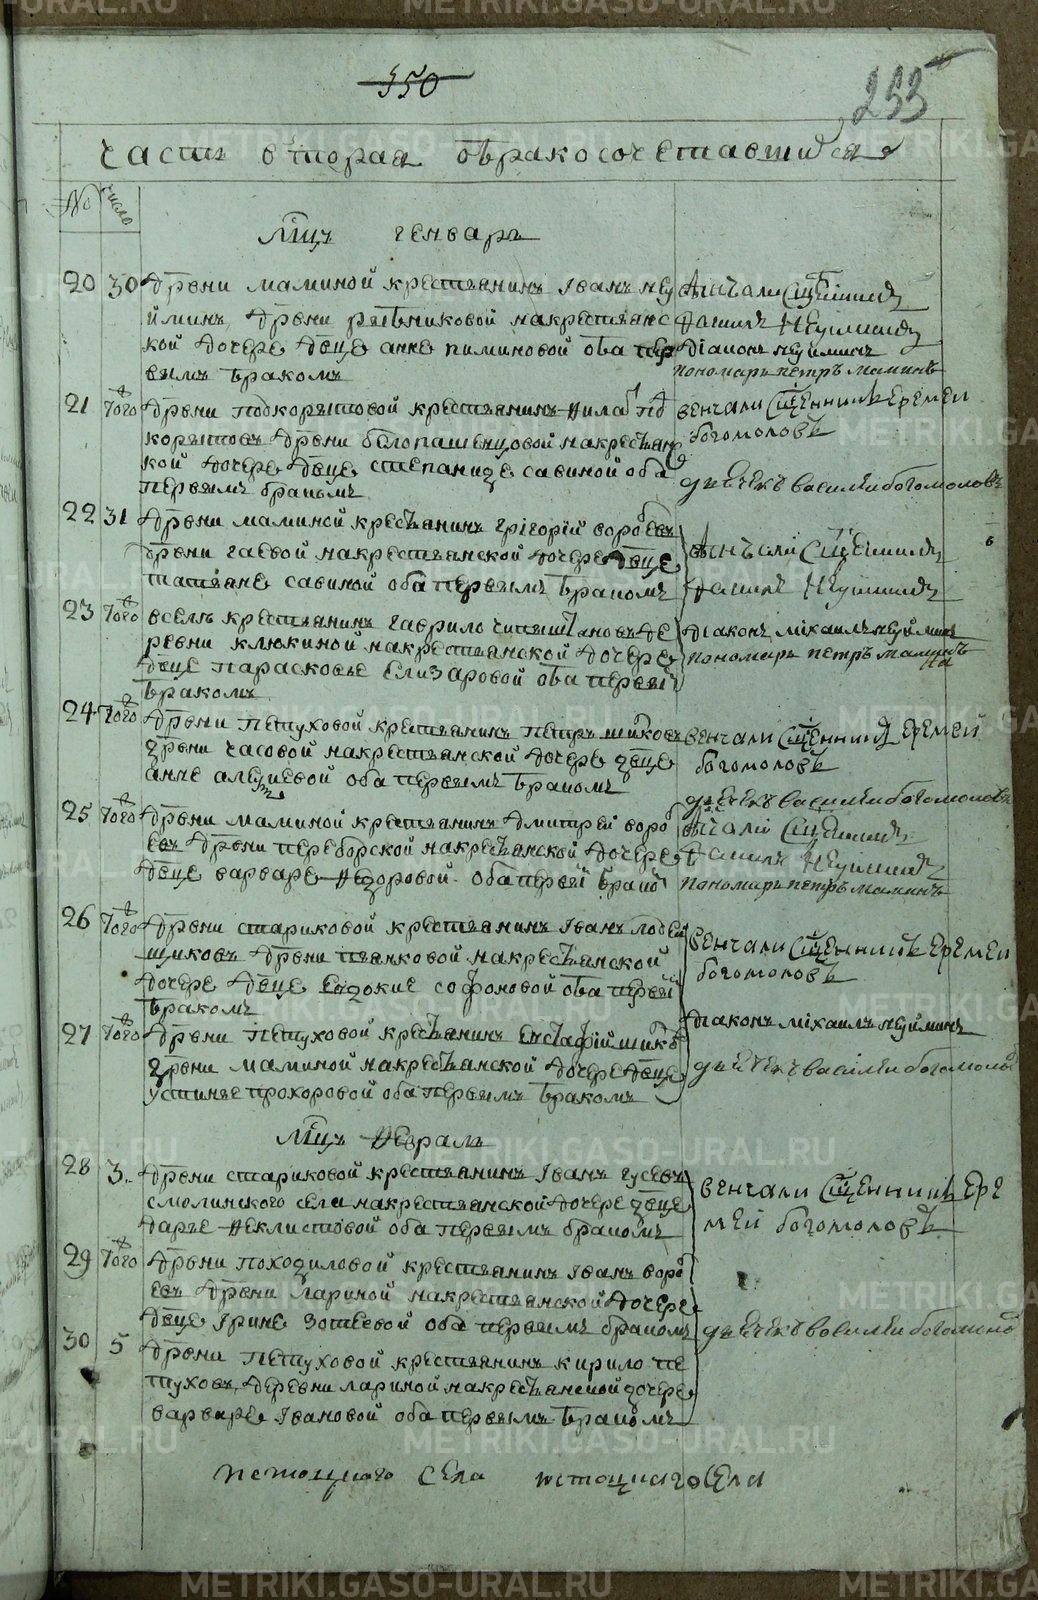 350
255
часть вторая о бракосочетавшихся
№
число
Мцъ генваръ
20 30 дрвни маминой крестьянинъ Iванъ неу
йминъ, дрвни рябниковой на крестьянс
кой дочере двце анне пиминовой оба пер
вымъ бракомъ
венчали Сщенникъ
Данилъ Неуйминъ
Дiаконъ неуйминъ
пономарь петръ маминъ
21 того дрвни подкорытовой крестьянинъ Филатъ под
корытовъ дрвни белопашенцовой на крестьян
кой дочере двце степаниде савиной оба
первымъ бракомъ
венчали Сщенникъ Еремеи
богомоловъ
дьячекъ василеи богомоловъ
22 31 дрвни маминой крестьянинъ грiгорiй воробевъ
дрвни гаевой на крестьянской дочере двце
татьяне савиной оба первымъ бракомъ
венчали Сщенникъ
Данилъ Неуйминъ
23 того всехъ крестьянинъ гаврило чипыштановъ де
ревни клюкиной на крестьянской дочере
двце парасковье Елизаровой оба первый
бракомъ
Дiаконъ мiхаилъ неуйминъ
пономарь петръ маминъ
24 того дрвни петуховой крестьянинъ петръ шиковъ
дрвни часовой на крестьянской дочере двце
анне алексиевой оба первымъ бракомъ
венчали Сщенникъ Еремей
богомоловъ
дьячекъ василеи богомоловъ
25 того дрвни маминой крестьянинъ дмитрей вороб
евъ дрвни переборской на крестьянской дочере
двце варваре Федоровой оба первый бракомъ
венчали Сщенникъ
Данилъ Неуйминъ
пономарь петръ маминъ
26 того дрвни стариковой крестьянинъ Iванъ лобей
щиковъ дрвни пьянковой на крестьянской
дочере двце Евдокие софоновой оба первый
бракомъ
венчали Сщенникъ Еремеи
богомоловъ
27 того дрвни петуховой крестьянинъ Евстафiй шиковъ
дрвни маминой на крестьянской дочере двце
устинье прохоровой оба первымъ бракомъ
Дiаконъ мiхаилъ неуйминъ
дьячекъ василеи богомоловъ
Мцъ Февраль
28 3 дрвни стариковой крестьянинъ Iванъ гусевъ
смолинского села на крестьянской дочере двце
дарье Феклистовой оба первымъ бракомъ
венчали Сщенникъ Ере
мей богомоловъ
29 того дрвни походиловой крестьянинъ Iванъ вороб
евъ дрвни лариной на крестьянской дочере
двце Iрине Зотеевой оба первымъ бракомъ
дьячекъ василеи богомоловъ
30 5 дрвни петуховой крестьянинъ кирило пе
туховъ, деревни лариной на крестьянской дочере
варваре Iвановой оба первымъ бракомъ
села
METRIKI.GASO-URAL.RU